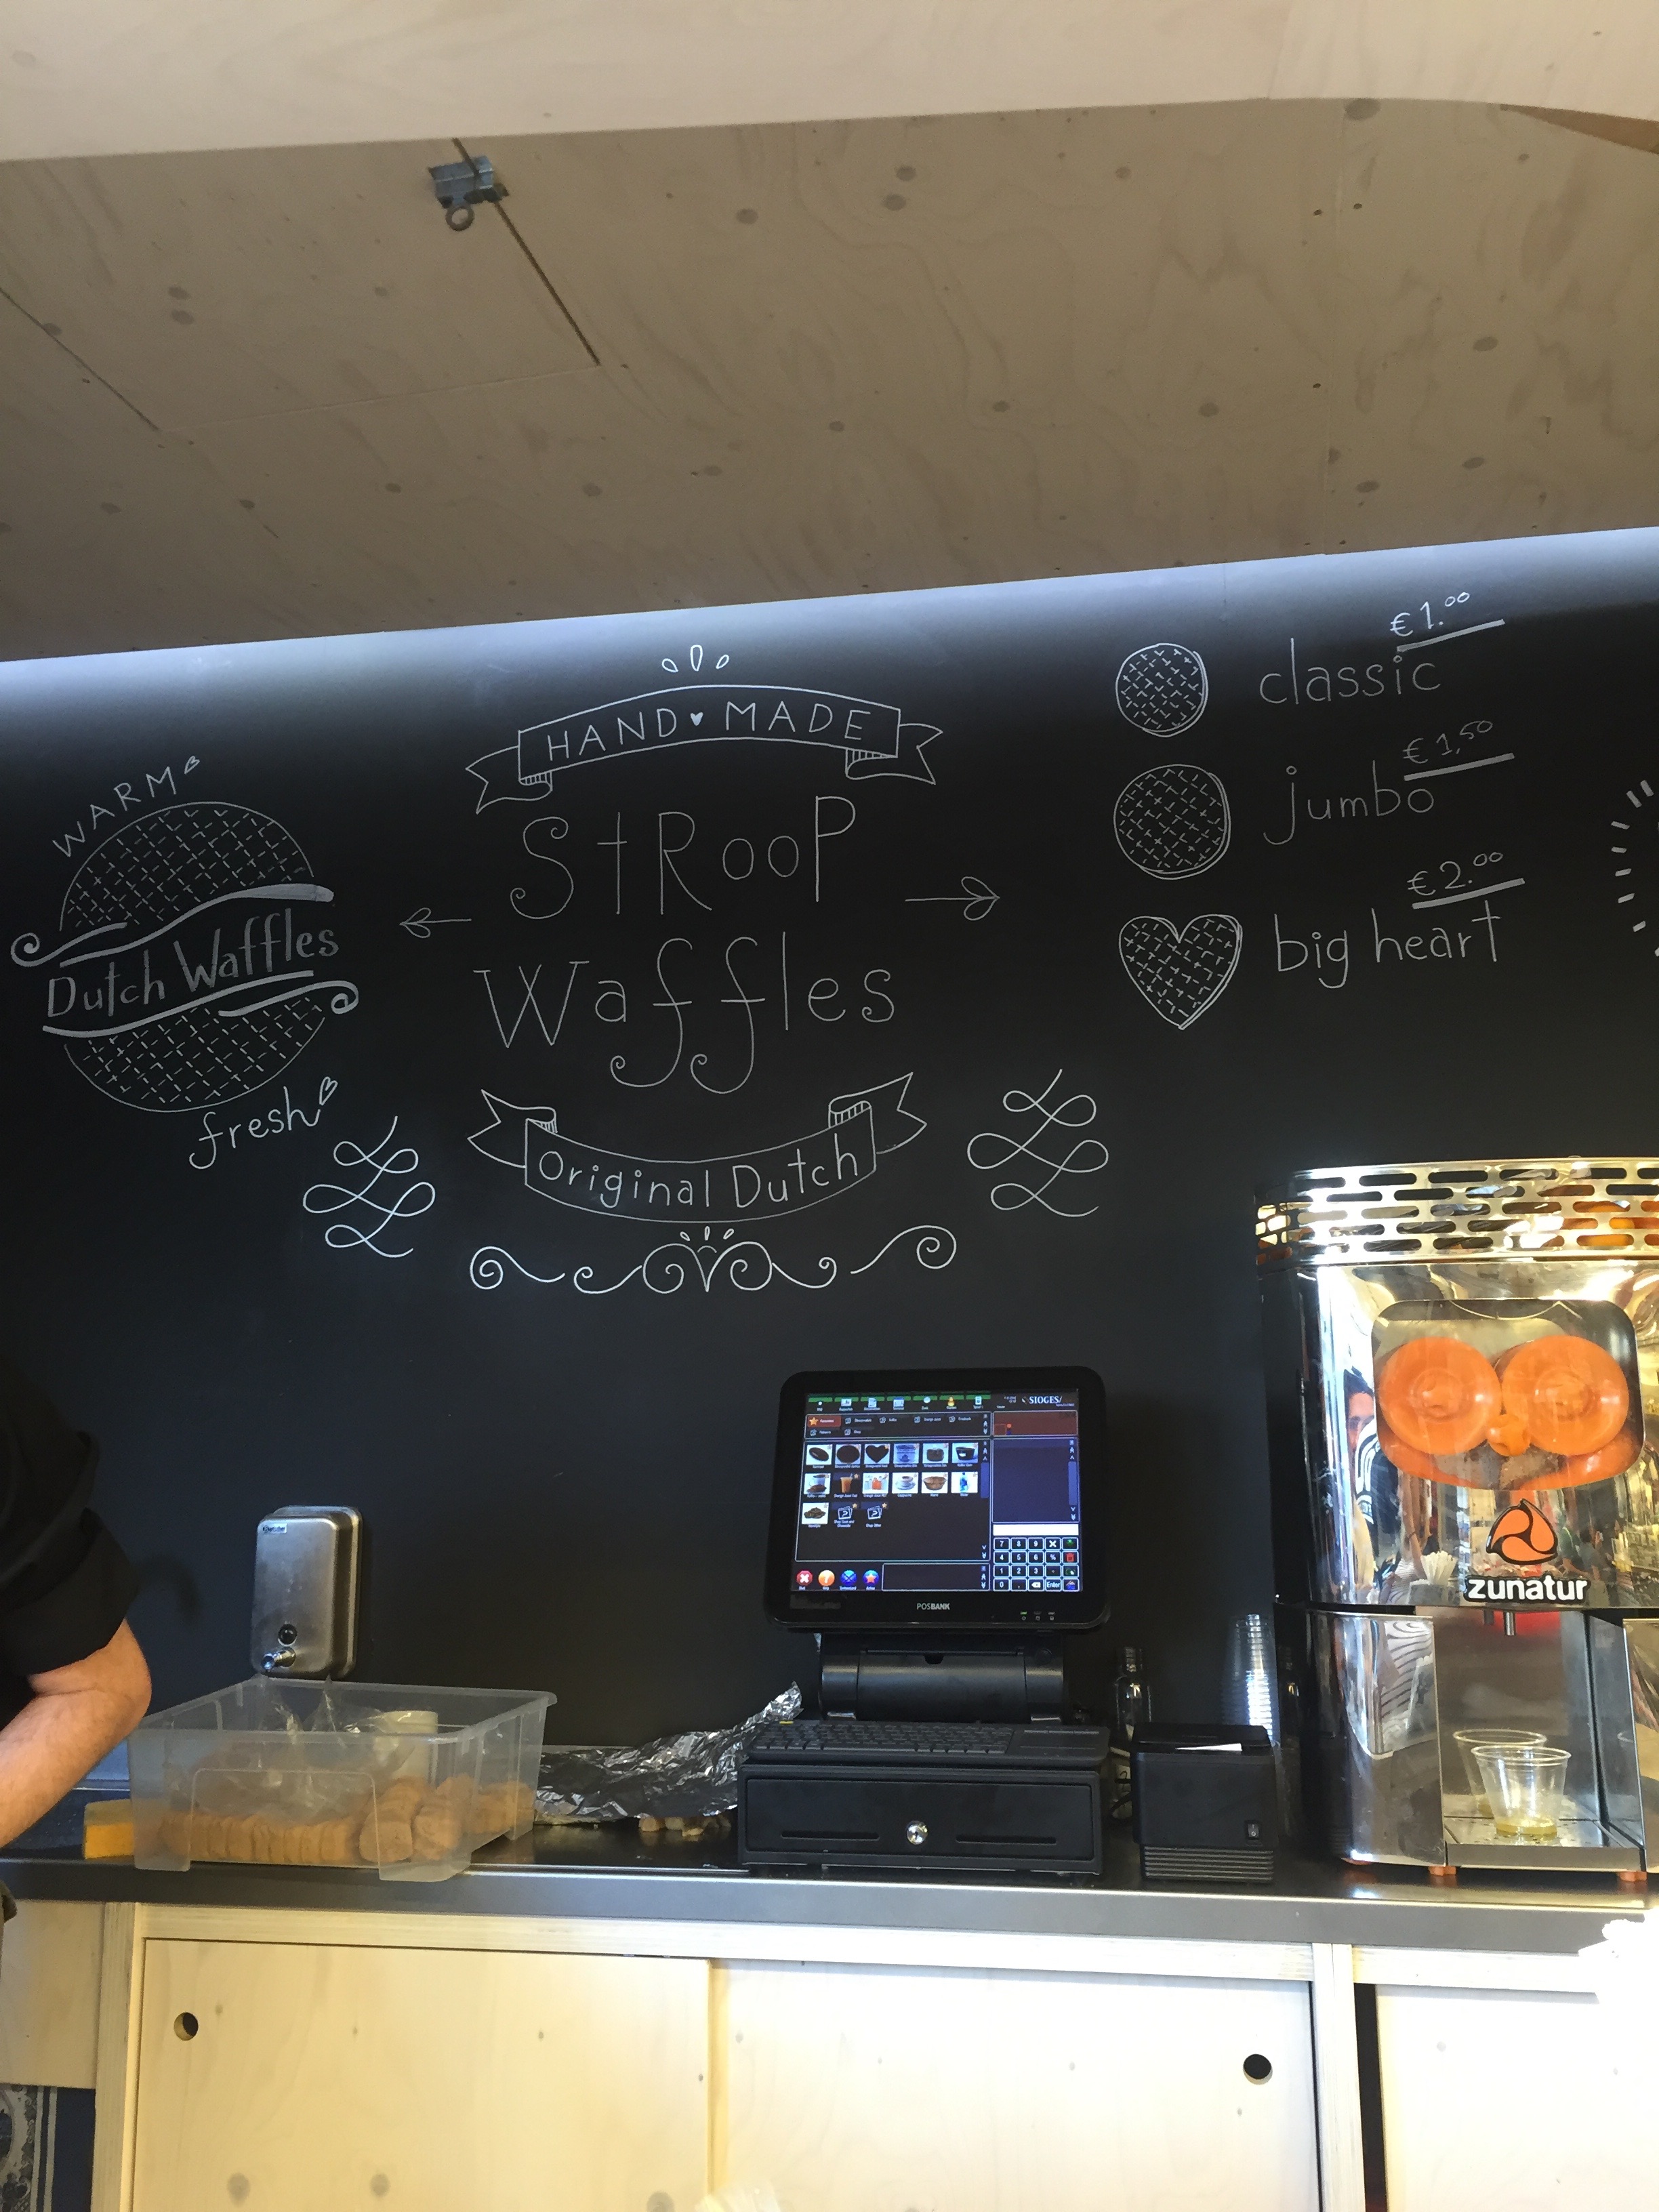 WARM
Dutch Waffles
fresh
HAND MADE
StRooP
Waffles
Original Dutch
€1.00
classic
€1,50
jumbo
€2.00
big heart
SIOGES/
7 8 9 X
4 5 6 %
1 2 3 -
0 . Enter
POSBANK
zunatur